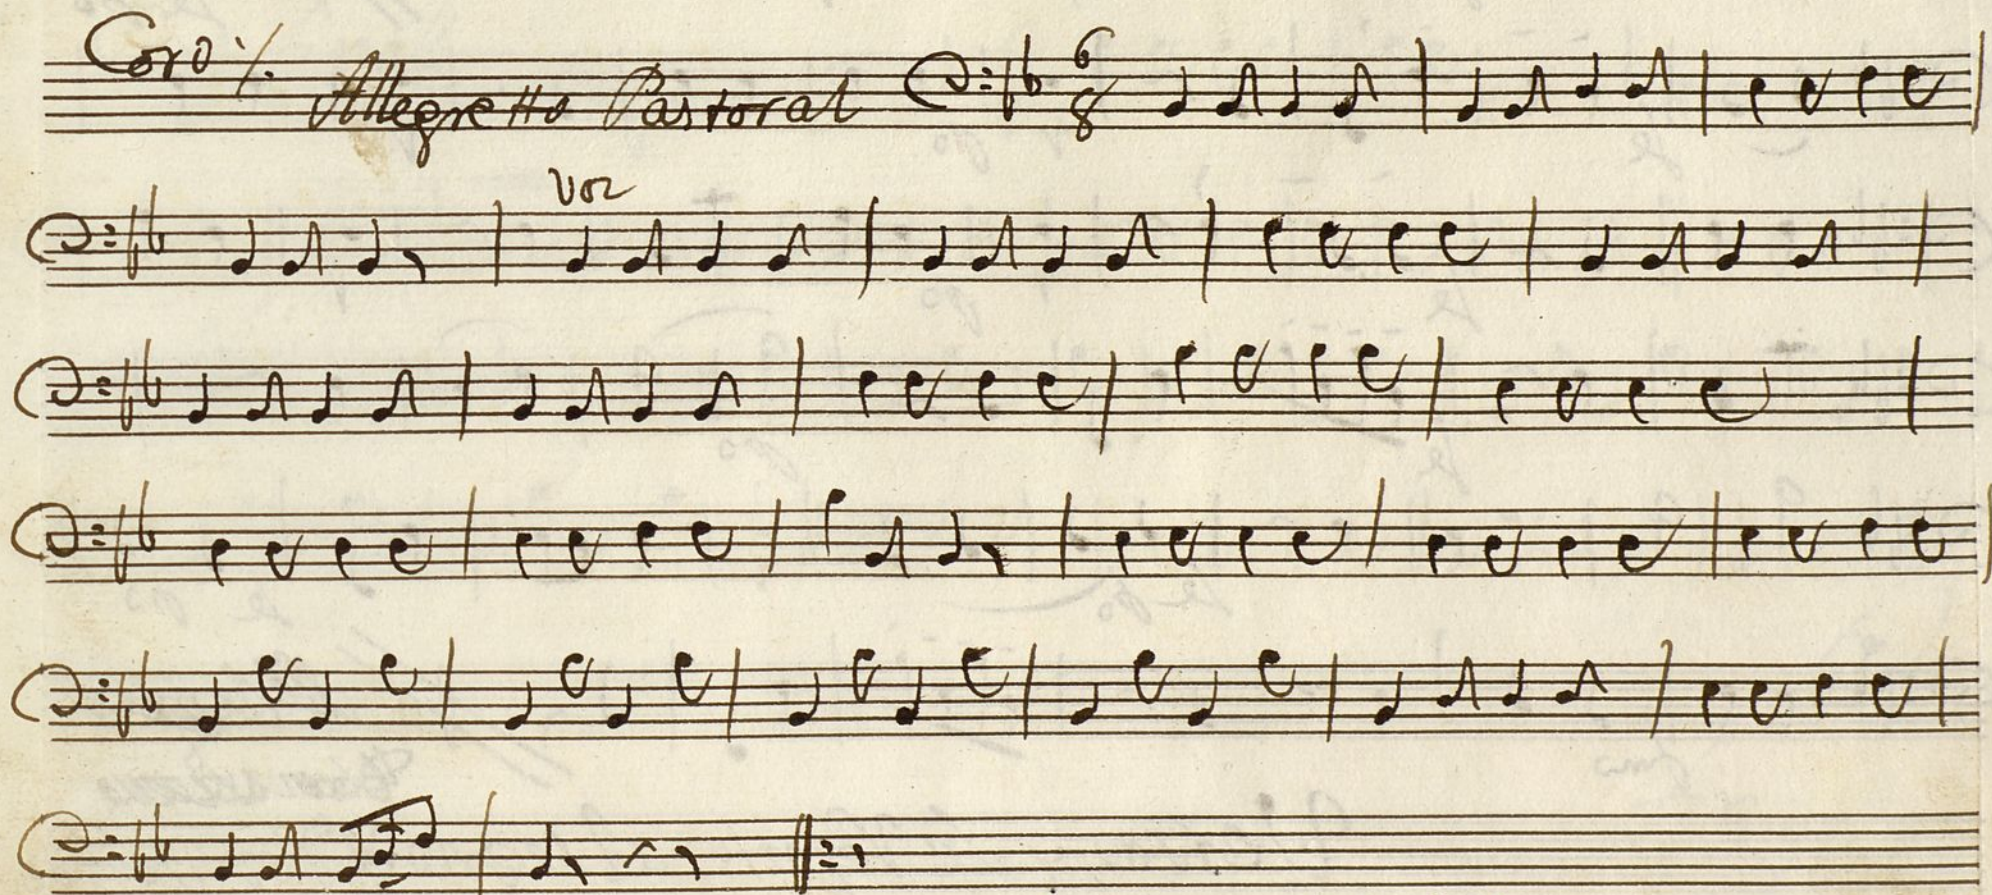 Coro ·/.
Allegretto Pastoral 6 8
Voz